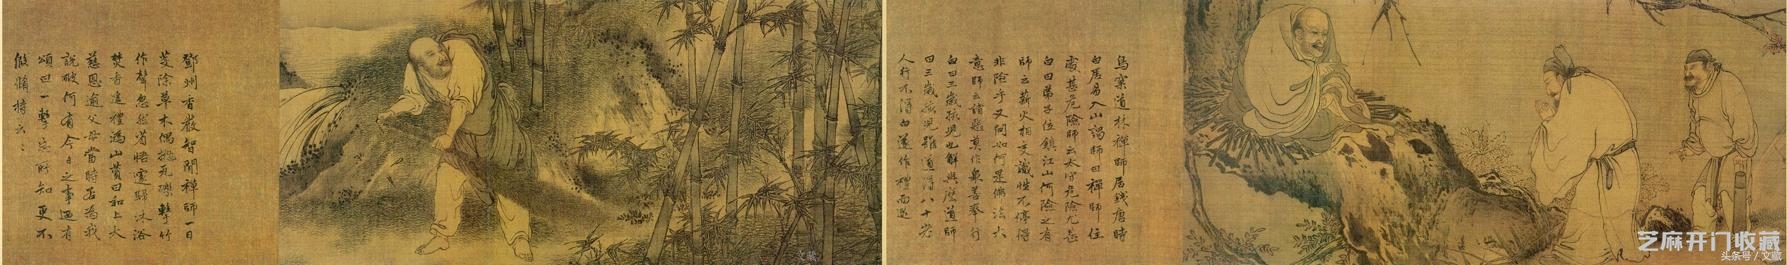 鄧州香嚴智閒禪師一日
芟除草木偶抛瓦礫擊竹
作聲忽然省悟遽歸沐浴
焚香遥禮溈山贊曰和上大
慈恩逾父母當時若為我
説破何有今日之事迺有
頌曰一擊忘所知更不
假脩持云〻
文藏
鳥窠道林禪師居錢唐時
白居易入山謁師曰禪師住
處甚危險師云太守危險尤甚
白曰弟子位鎮江山何險之有
師云薪火相交識性不停得
非險乎又問如何是佛法大
意師云諸惡莫作衆善奉行
白曰三歲孩兒也解與麽道師
曰三歲孩兒雖道得八十老
人行不得白遂作禮而退
芝麻开门收藏
头条号/文藏